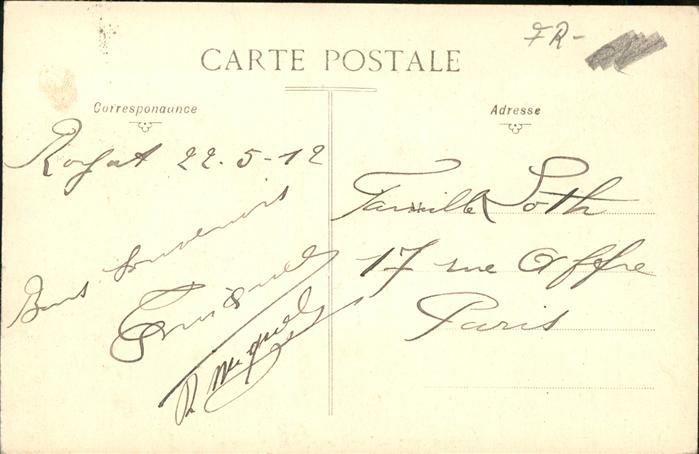 FR-
CARTE POSTALE
Correspondance
Royat 22-5-12
Bons Souvenirs
Adresse
Famille Loth
17 rue Affre
Paris